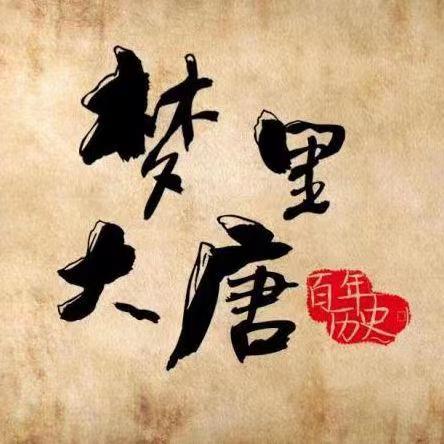 梦里
大唐
百年
历史